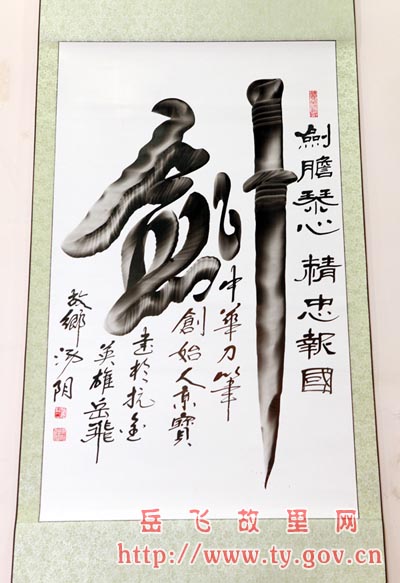 劍膽琴心 精忠報國
劍
中華刀筆
創始人京寶
書於抗金
英雄岳飛
故鄉湯阴
岳飞故里网
http://www.ty.gov.cn